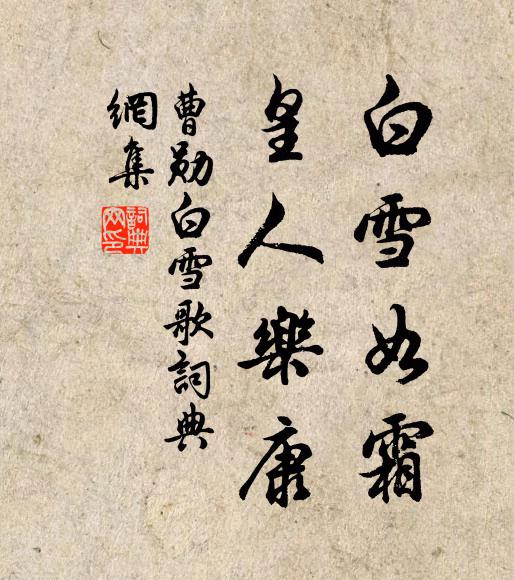 白雪如霜
皇人樂康
曹勛白雪歌詞典
網集
詞典
网印